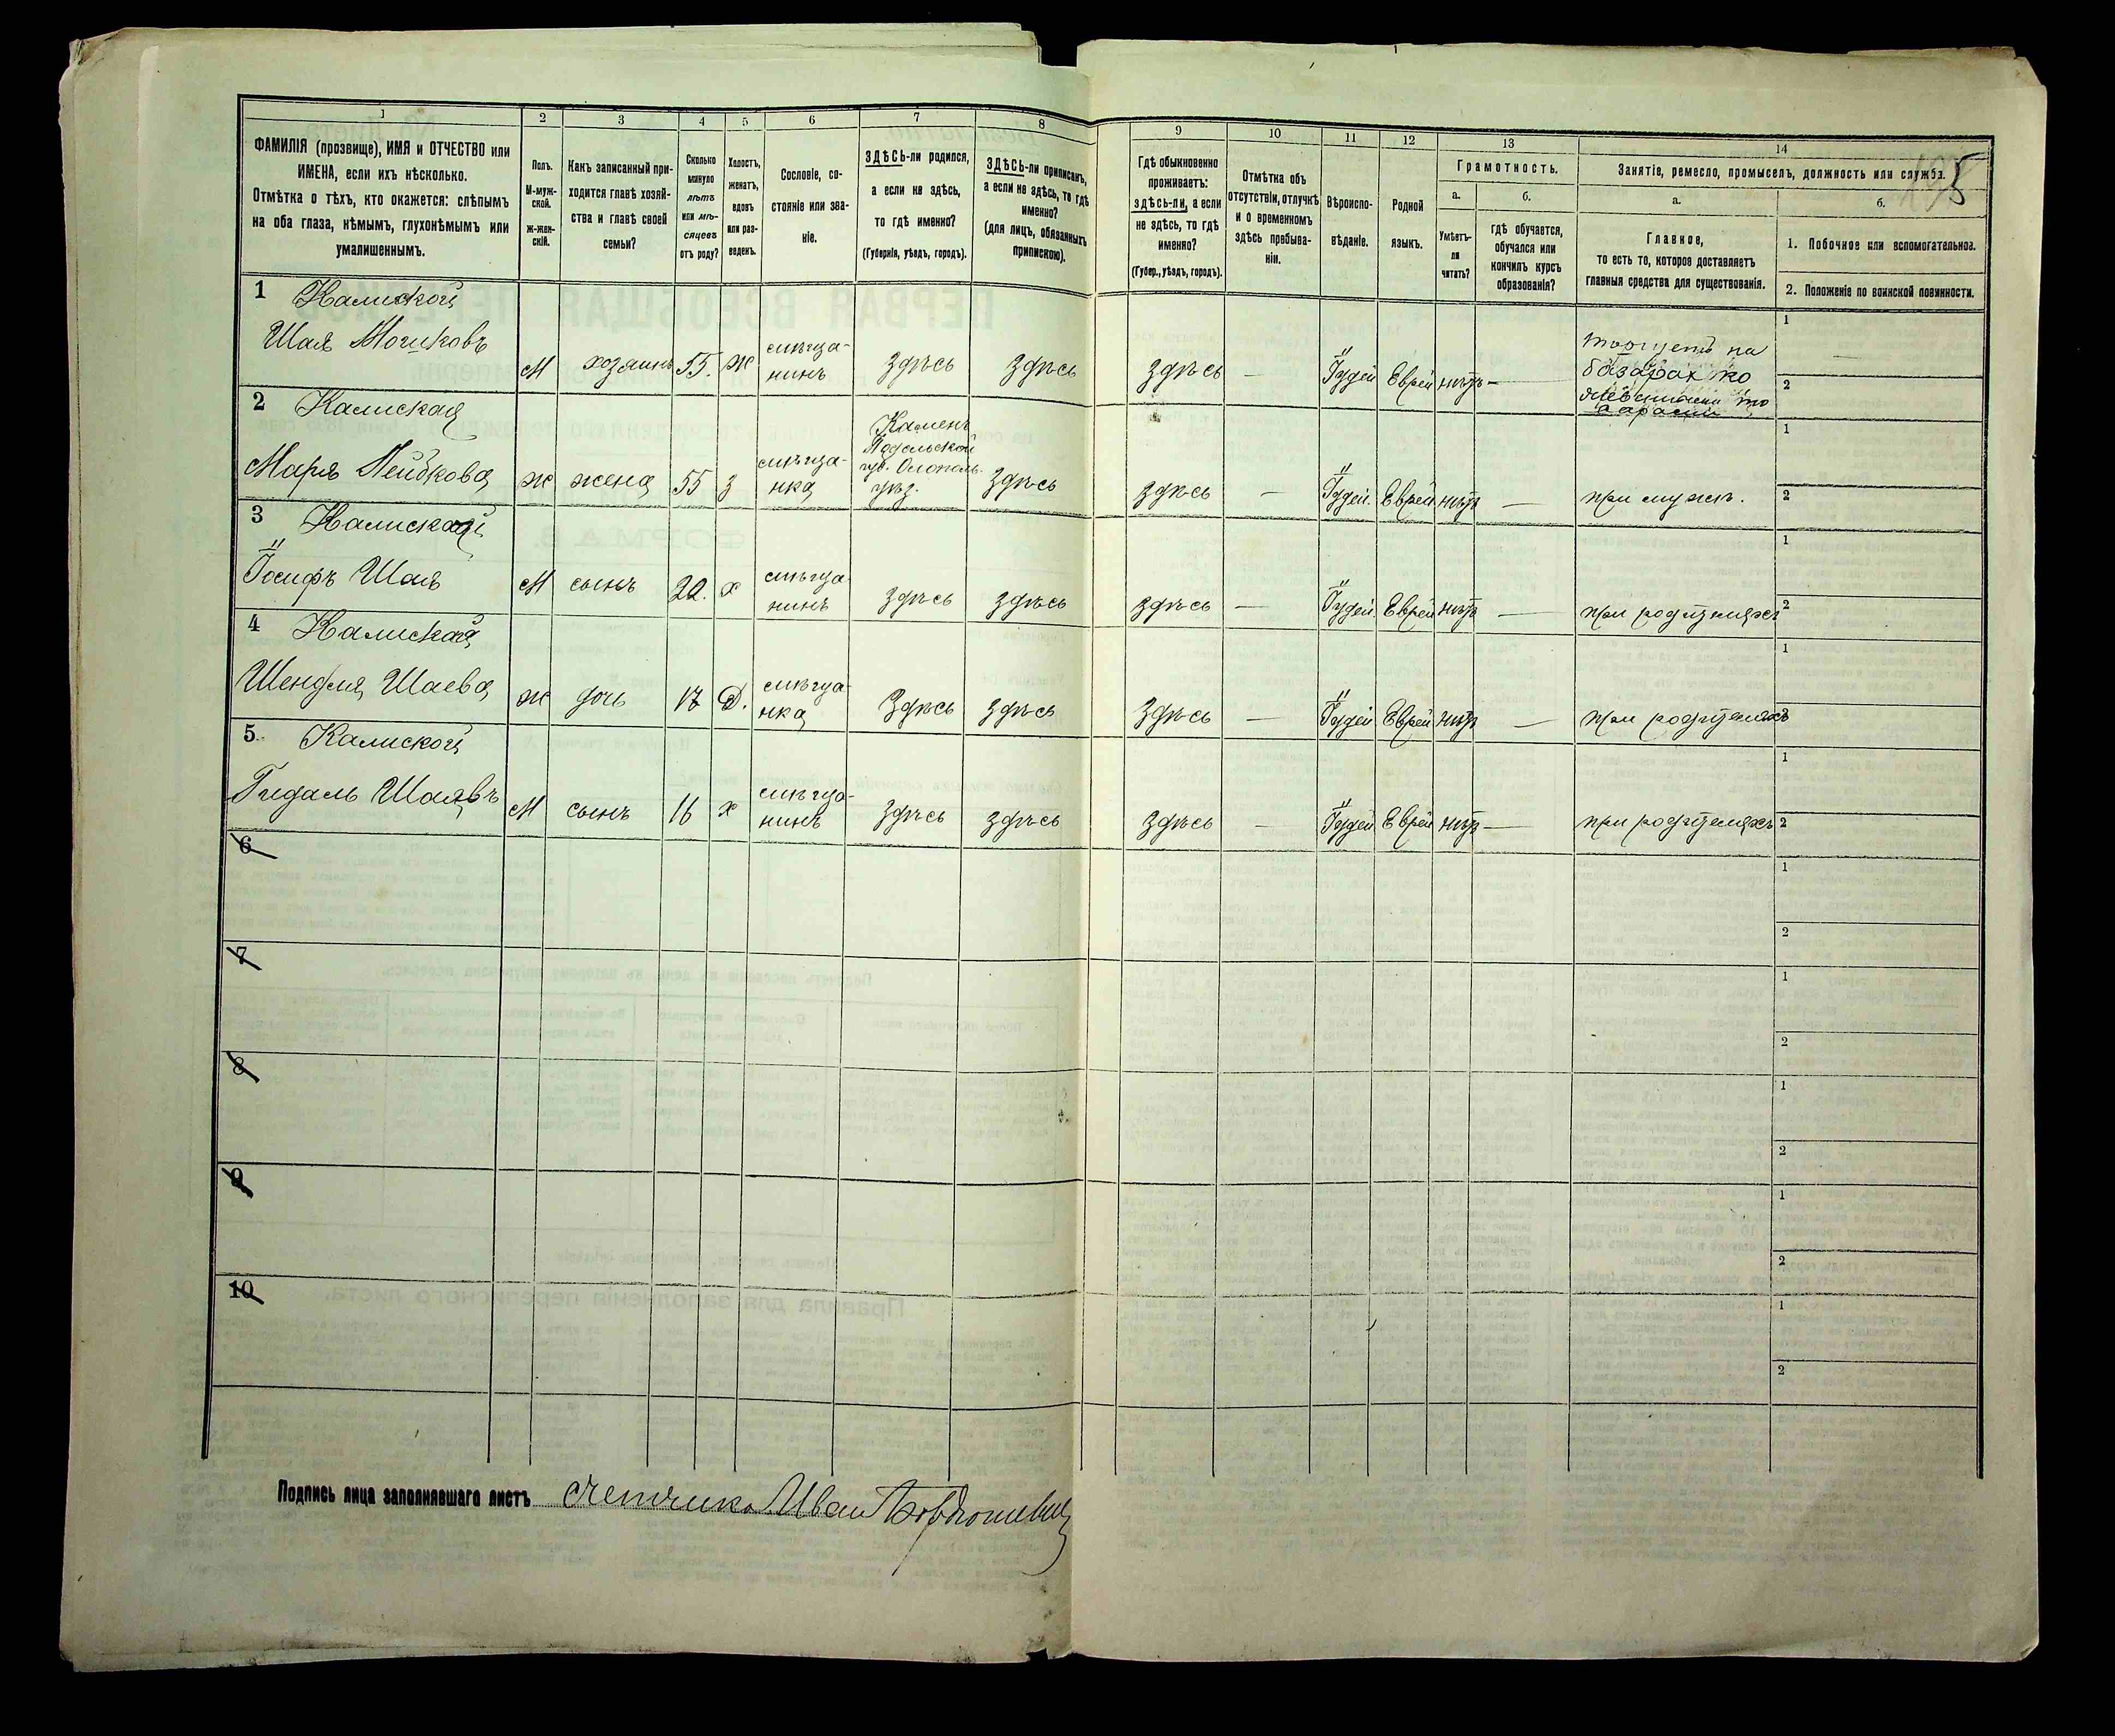 1 2 3 4 5 6 7 8 9 10 11 12 13 14
ФАМИЛІЯ (прозвище), ИМЯ и ОТЧЕСТВО или
ИМЕНА, если ихъ нѣсколько.
Отмѣтка о тѣхъ, кто окажется: слѣпымъ
на оба глаза, нѣмымъ, глухонѣмымъ или
умалишеннымъ.
Полъ.
М-муж-
ской.
Ж-жен-
скій.
Какъ записанный при-
ходится главѣ хозяй-
ства и главѣ своей
семьи?
Сколько
минуло
лѣтъ
или мѣ-
сяцевъ
отъ роду?
Холостъ,
женатъ,
вдовъ
или раз-
веденъ.
Сословіе, со-
стояніе или зва-
ніе.
ЗДѢСЬ-ли родился,
а если не здѣсь,
то гдѣ именно?
(Губернія, уѣздъ, городъ).
ЗДѢСЬ-ли приписанъ,
а если не здѣсь, то гдѣ
именно?
(для лицъ, обязанныхъ
припискою).
Гдѣ обыкновенно
проживаетъ:
здѣсь-ли, а если
не здѣсь, то гдѣ
именно?
(Губер., уѣздъ, городъ).
Отмѣтка объ
отсутствіи, отлучкѣ
и о временномъ
здѣсь пребыва-
ніи.
Вѣроиспо-
вѣданіе.
Родной
языкъ.
Грамотность.
а.
Умѣетъ-
ли
читать?
б.
гдѣ обучается,
обучался или
кончилъ курсъ
образованія?
Занятіе, ремесло, промыселъ, должность или служба.
а.
Главное,
то есть то, которое доставляетъ
главныя средства для существованія.
б.
1. Побочное или вспомогательное.
2. Положеніе по воинской повинности.
1 Калиской
Шая Мошковъ
М хозяинъ 55. Ж мѣща-
нинъ здѣсь здѣсь здѣсь — Іудей Еврей нѣтъ —
торгуетъ на
базарах
1
2
2 Калиская
Маря Лейбкова ж жена 55 з мѣща-
нка
Камень
Подольской
губ. Ольгополь.
уѣз.
здѣсь здѣсь — Іудей. Еврей нѣтъ — при мужѣ.
1
2
3 Калиской
Іосифъ Шая М сынъ 22. х мѣща
нинъ здѣсь здѣсь здѣсь — Іудей. Еврей нѣтъ — при родителяхъ
1
2
4 Калиская
Шендля Шаева ж дочь 17 Д. мѣща-
нка здѣсь здѣсь здѣсь — Іудей Еврей нѣтъ — при родителяхъ
1
2
5. Калиской
Гидаль Шаявъ М сынъ 16 х мѣща-
нинъ здѣсь здѣсь здѣсь — Іудей Еврей нѣтъ — при родителяхъ
1
2
6
1
2
7
1
2
8
1
2
9
1
2
10
1
2
Подпись лица заполнявшаго листъ Счетчика Иван